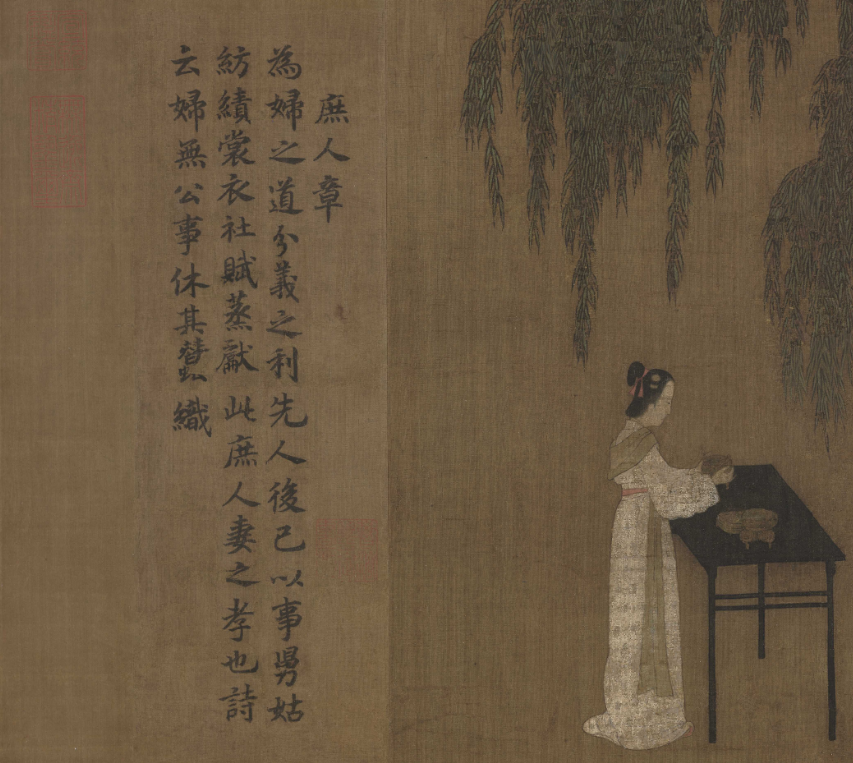 庶人章
為婦之道分義之利先人後己以事舅姑
紡績裳衣社賦蒸獻此庶人妻之孝也詩
云婦無公事休其蠶織